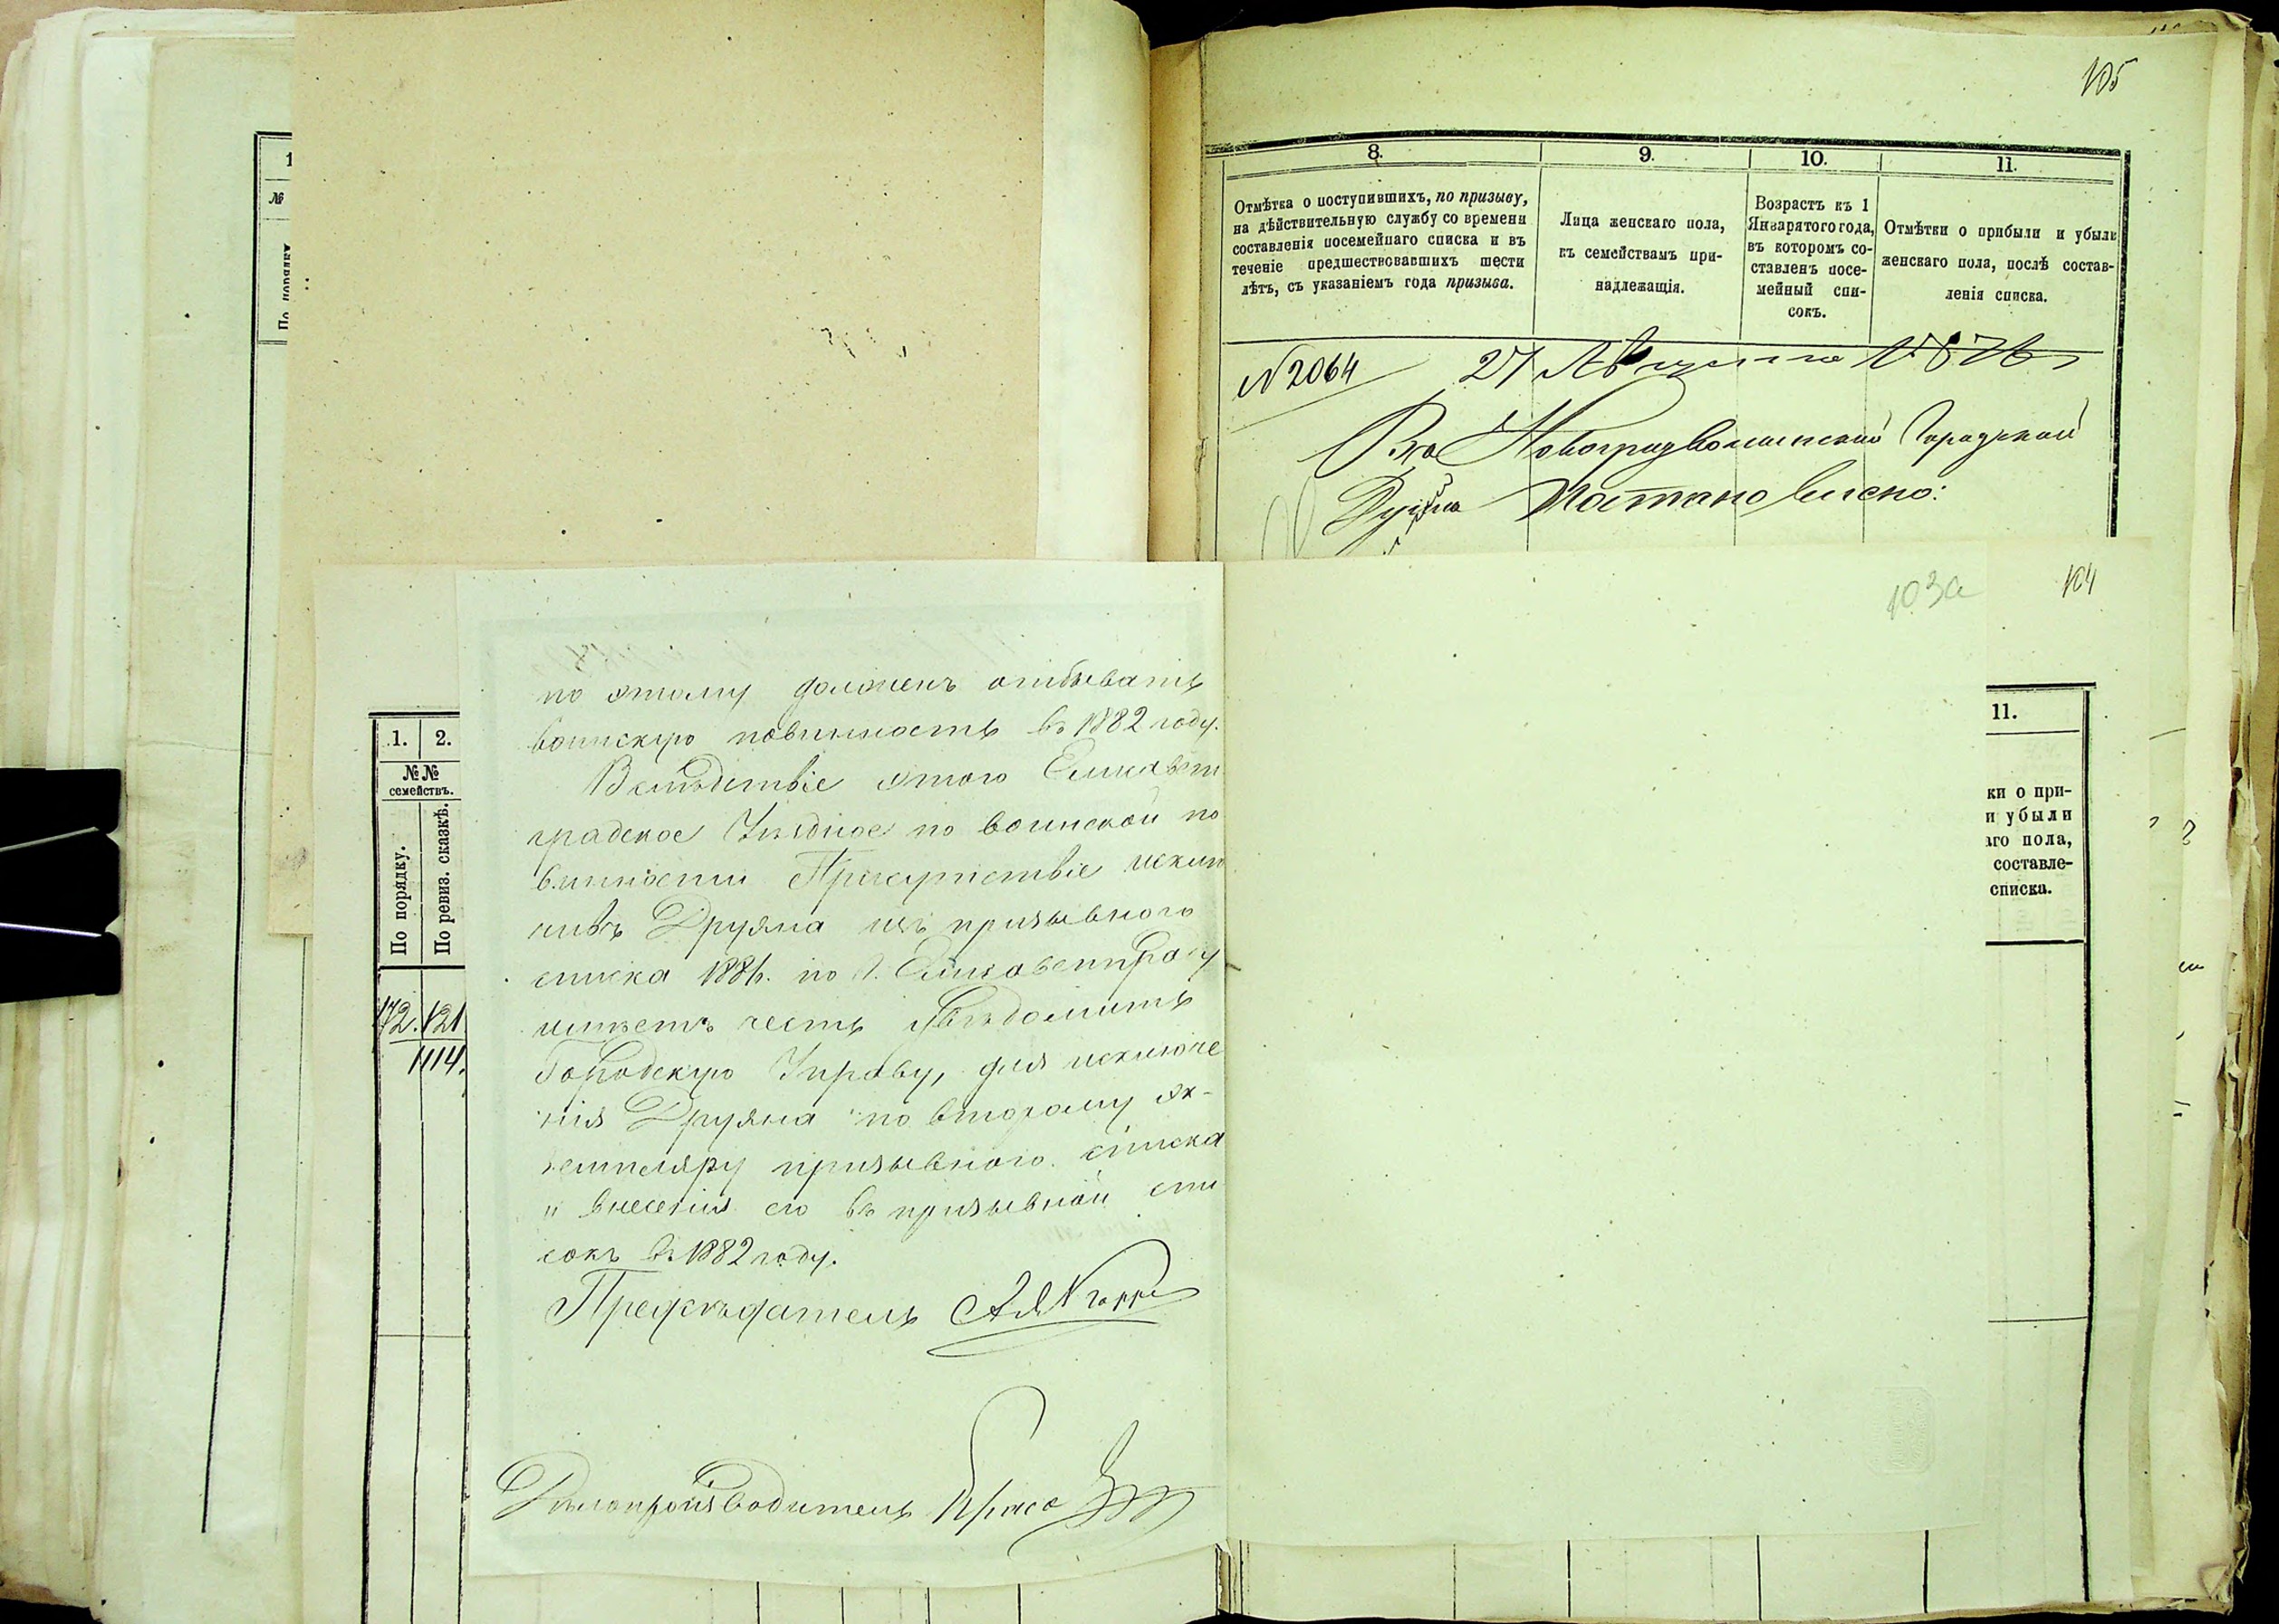 105
8.
9.
10.
11.
Отмѣтка о поступившихъ, по призыву,
на дѣйствительную службу со времени
составленія посемейнаго списка и въ
теченіе предшествовавшихъ шести
лѣтъ, съ указаніемъ года призыва.
Лица женскаго пола,
къ семействамъ при-
надлежащія.
Возрастъ къ 1
Января того года,
въ которомъ со-
ставленъ посе-
мейный спи-
сокъ.
Отмѣтки о прибыли и убыли
женскаго пола, послѣ состав-
ленія списка.
№ 2064 27 Августа
Городской
Постановлено:
1
№
По порядку
103а
104
по этому долженъ отбывать
воинскую повинность въ 1882 году.
Вслѣдствіе этого Елисавет
градское Уѣздное по воинской по
винности Присутствіе исклю
чивъ Друяна изъ призывного
списка 1881 г. по г. Елисаветграду
имѣетъ честь увѣдомить
Городскую Управу, для исключе
нія Друяна по второму эк-
земпляру призывного списка
и внесенія его въ призывной спи
сокъ въ 1882 году.
Предсѣдатель
Дѣлопроизводитель
1.
2.
№ №
семействъ.
По порядку.
По ревиз. сказкѣ.
172. 121
114.
11.
ки о при-
и убыли
аго пола,
составле-
списка.